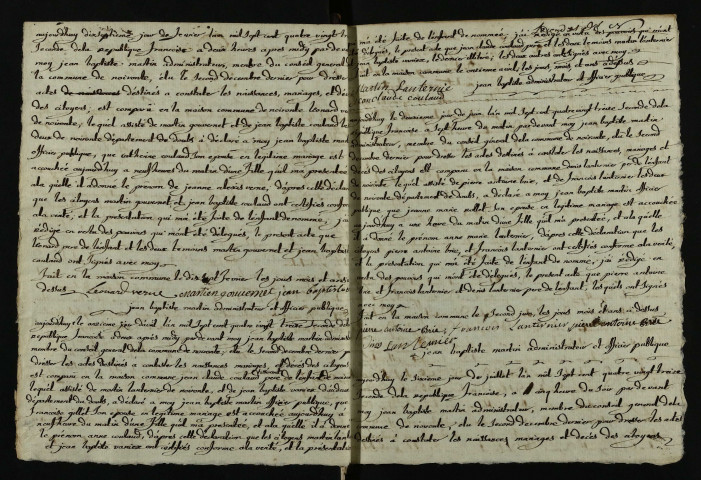 aujourdhuy dixseptieme jour de fevrier lan mil sept cent quatre vingt treize
seconde dela republique francoise a deux heures apres midy par devant
moy jean baptiste martin administrateur, membre du conseil general de
la commune de noironte, elu le second décembre dernier pour dresser
actes destinés a constater les naissances, mariages, et décès
des citoyens, est comparu en la maison commune de noironte leonard verne
de noironte, lequel assisté de martin gouvernet et de jean baptiste coulaud
deux de noironte département du doubs, a déclaré a moy jean baptiste martin
officier publique, que catherine coulaud son epouse en legitime mariage est
accouchée aujourdhuy a neuf heures du matin d'une fille qui ma presentée
a la quelle il a donné le prenom de jeanne alexis verne, d'apres cette déclaration
que les citoyens martin gouvenet, et jean baptiste coulaud ont certifiés conforme
a la verité, et la presentation qui ma été faite de l'enfant denommé, jai
rédigé en vertu des pouvoirs qui m'ont été délegués, le present acte que
léonard pere de l'enfant et les deux temoins martin gouvenet et jean baptiste
coulaud ont signés avec moy
fait en la maison commune le dix sept fevrier les jours mois et an
dessus Leonard verne martin gouvernet jean baptiste
jean baptiste martin administrateur et officier publique
aujourdhuy le onzieme jour d'avril lan mil sept cent quatre vingt treize seconde dela
republique francoise a une heure apres midy par devant moy jean baptiste martin administrateur
membre du conseil general de la commune de noironte, elu le second décembre dernier pour
dresser les actes destinés a constater les naissances mariages, et décès des citoyens
est comparu en la maison commune jean claude coulaud
lequel assisté de martin lanternier de noironte, et de jean baptiste
département du doubs, a déclaré a moy jean baptiste martin officier publique, que
francoise gillet son epouse en legitime mariage est accouchée aujourdhuy a
neuf heure du matin d'une fille qui ma presentée, et a la quelle il a donné
le prenom anne coulaud, d'apres cette déclaration que les citoyens martin lanternier
et jean baptiste ont certifiés conforme a la verité, et la presentation
qui ma été faite de l'enfant denommée, jai rédigé en vertu des pouvoirs qui m'ont
été délegués, le present acte que jean claude coulaud pere et les deux temoins martin lanternier
avec moy
fait en la maison commune le onzieme avril les jours, mois et ans cidessus
martin Lanternie jean baptiste martin administrateur et officier publique
jean claude coulaud
aujourdhuy le deuxieme jour de juin lan mil sept cent quatre vingt treize seconde dela
republique francoise a sept heures du matin par devant moy jean baptiste martin
administrateur, membre du conseil general de la commune de noironte, elu le second
decembre dernier pour dresser les actes destinés a constater les naissances, mariages et
décès des citoyens est comparu en la maison commune denis lanternier pere de l'enfant
de noironte lequel assisté de pierre antoine brie, et de francois lanternier les deux
de noironte département du doubs, a déclaré a moy jean baptiste martin officier
publique que jeanne marie gillet son epouse en legitime mariage est accouchée
aujourdhuy a une heure du matin d'une fille qui ma presentée, et a la quelle
il a donné le prenom anne marie lanternier, d'apres cette déclaration que les
citoyens pierre antoine brie, et francois lanternier ont certifiés conforme a la verité,
et la presentation qui ma été faite de l'enfant denommé, jai rédigé en
vertu des pouvoirs qui m'ont été délegués, le present acte que pierre antoine
brie et francois lanternier et denis lanternier pere de l'enfant, les quels ont signés
avec moy
fait en la maison commune le second juin, les jours mois et ans a dessus
pierre antoine brie francois Lanternier
denis Lanternier jean baptiste martin administrateur et officier publique
aujourdhuy le sixieme jour de juillet lan mil sept cent quatre vingt treize
seconde dela republique francoise, a cinq heure du soir par devant
moy jean baptiste martin administrateur, membre du conseil general de la
commune de noironte, elu le second decembre dernier pour dresser les actes
destinés a constater les naissances mariages et décès des citoyens